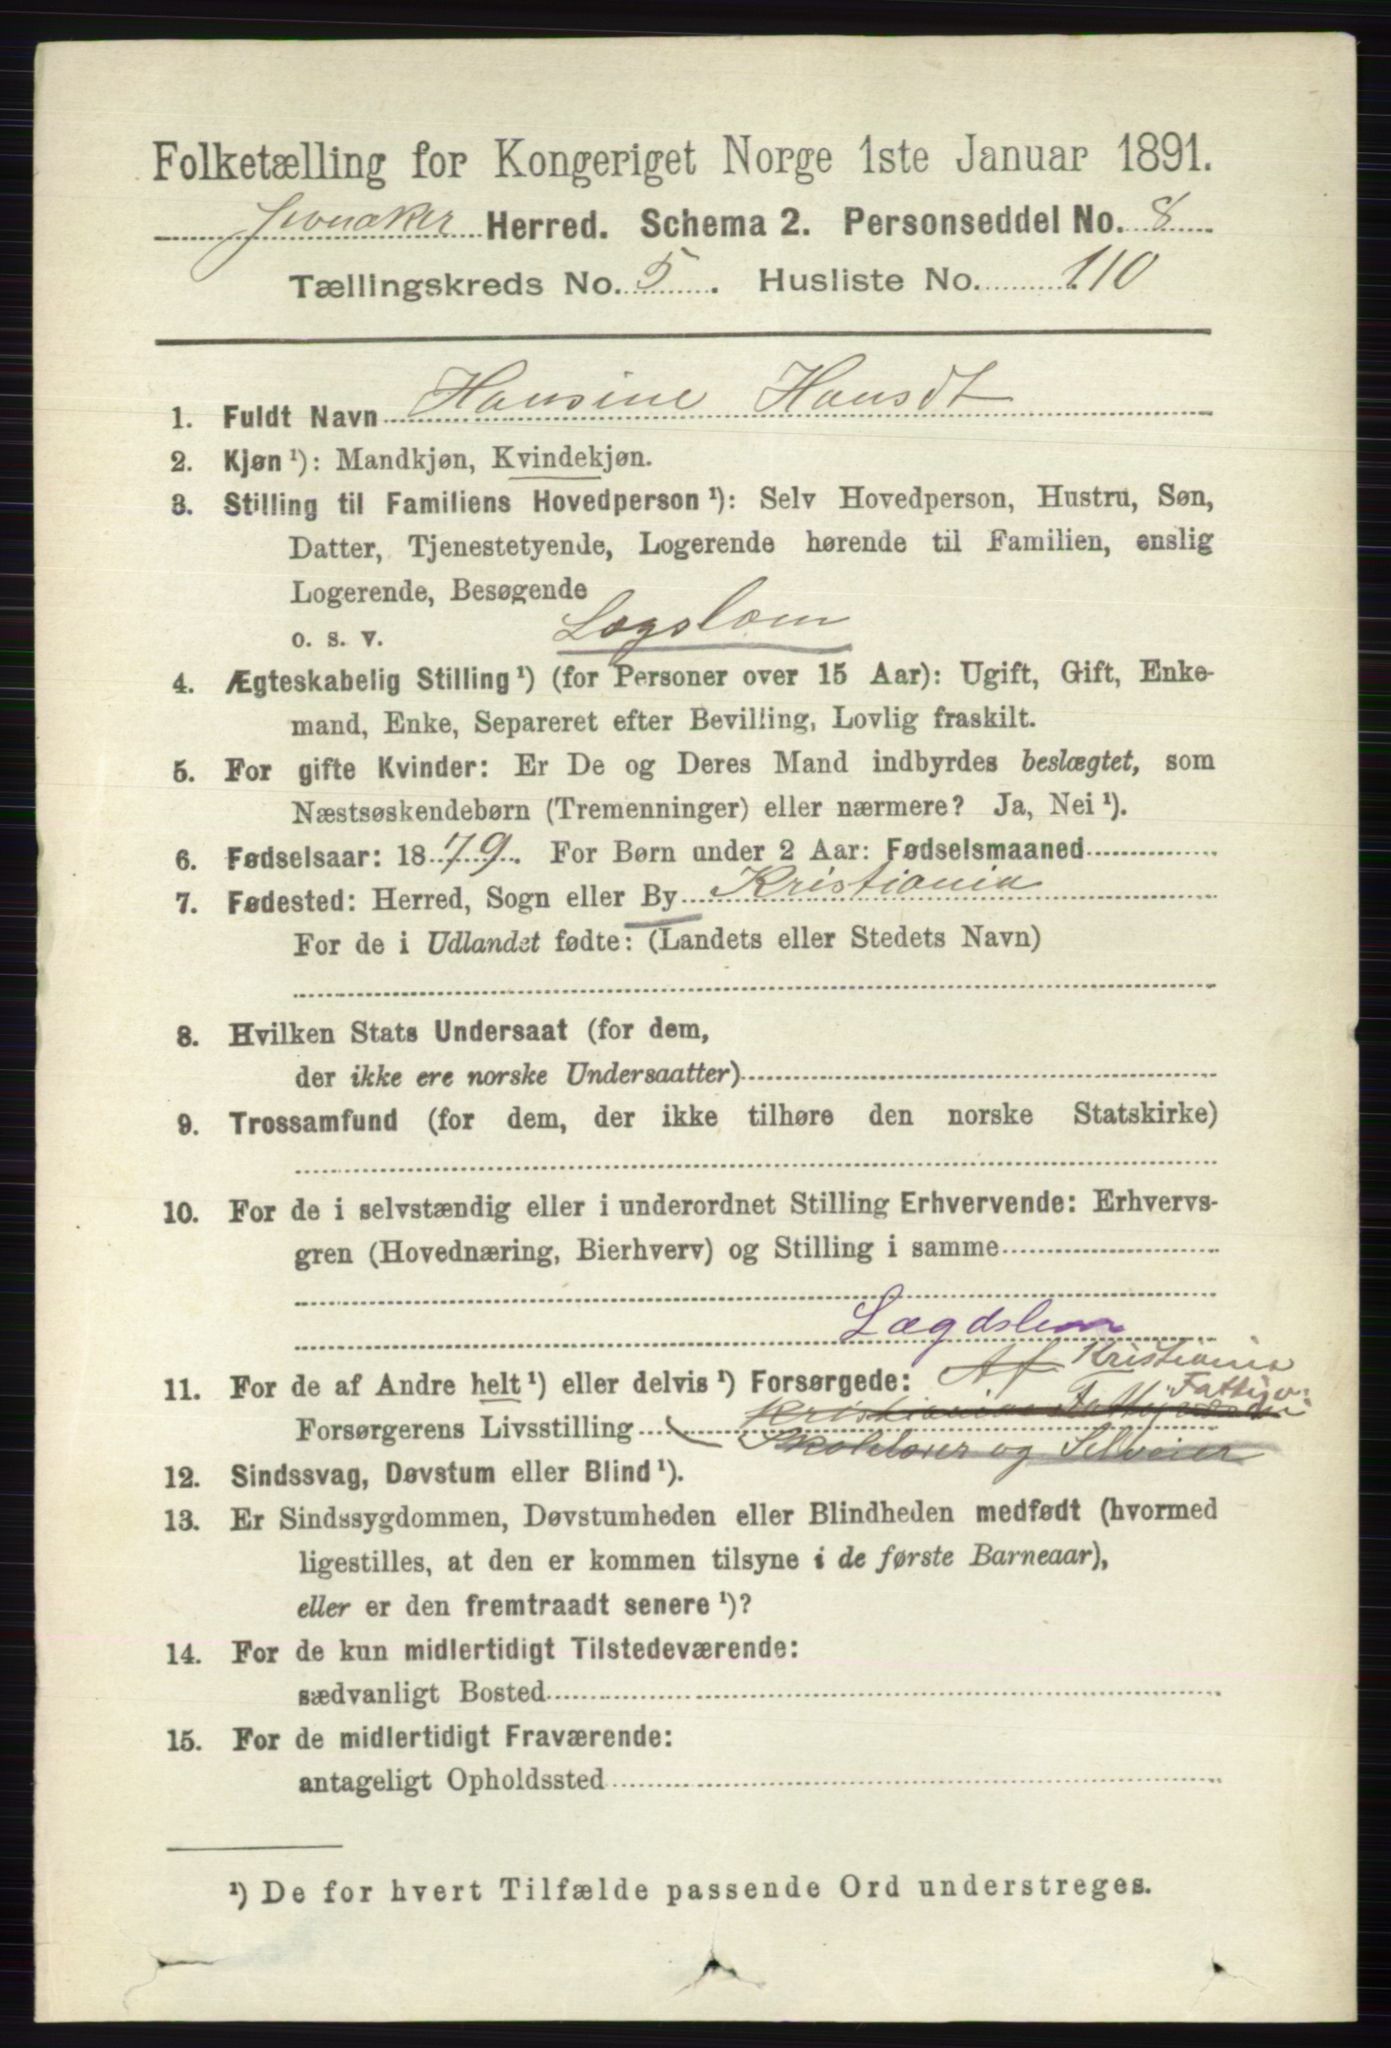 Folketælling for Kongeriget Norge 1ste Januar 1891.
Jevnaker Herred. Schema 2. Personseddel No. 8
Tællingskreds No. 5. Husliste No. 110
1. Fuldt Navn Hansine Hansdt
2. Kjøn ¹): Mandkjøn, Kvindekjøn.
3. Stilling til Familiens Hovedperson ¹): Selv Hovedperson, Hustru, Søn,
Datter, Tjenestetyende, Logerende hørende til Familien, enslig
Logerende, Besøgende
o. s. v. Lægslem
4. Ægteskabelig Stilling ¹) (for Personer over 15 Aar): Ugift, Gift, Enke-
mand, Enke, Separeret efter Bevilling, Lovlig fraskilt.
5. For gifte Kvinder: Er De og Deres Mand indbyrdes beslægtet, som
Næstsøskendebørn (Tremenninger) eller nærmere? Ja, Nei ¹).
6. Fødselsaar: 1879. For Børn under 2 Aar: Fødselsmaaned
7. Fødested: Herred, Sogn eller By Kristiania
For de i Udlandet fødte: (Landets eller Stedets Navn)
8. Hvilken Stats Undersaat (for dem,
der ikke ere norske Undersaatter)
9. Trossamfund (for dem, der ikke tilhøre den norske Statskirke)
10. For de i selvstændig eller i underordnet Stilling Erhvervende: Erhvervs-
gren (Hovednæring, Bierhverv) og Stilling i samme
Lægdslem
11. For de af Andre helt ¹) eller delvis ¹) Forsørgede: Af Kristiania
Forsørgerens Livsstilling Kristiania
Skolelærer og Selveier
12. Sindssvag, Døvstum eller Blind ¹).
13. Er Sindssygdommen, Døvstumheden eller Blindheden medfødt (hvormed
ligestilles, at den er kommen tilsyne i de første Barneaar),
eller er den fremtraadt senere ¹)?
14. For de kun midlertidigt Tilstedeværende:
sædvanligt Bosted
15. For de midlertidigt Fraværende:
antageligt Opholdssted
¹) De for hvert Tilfælde passende Ord understreges.